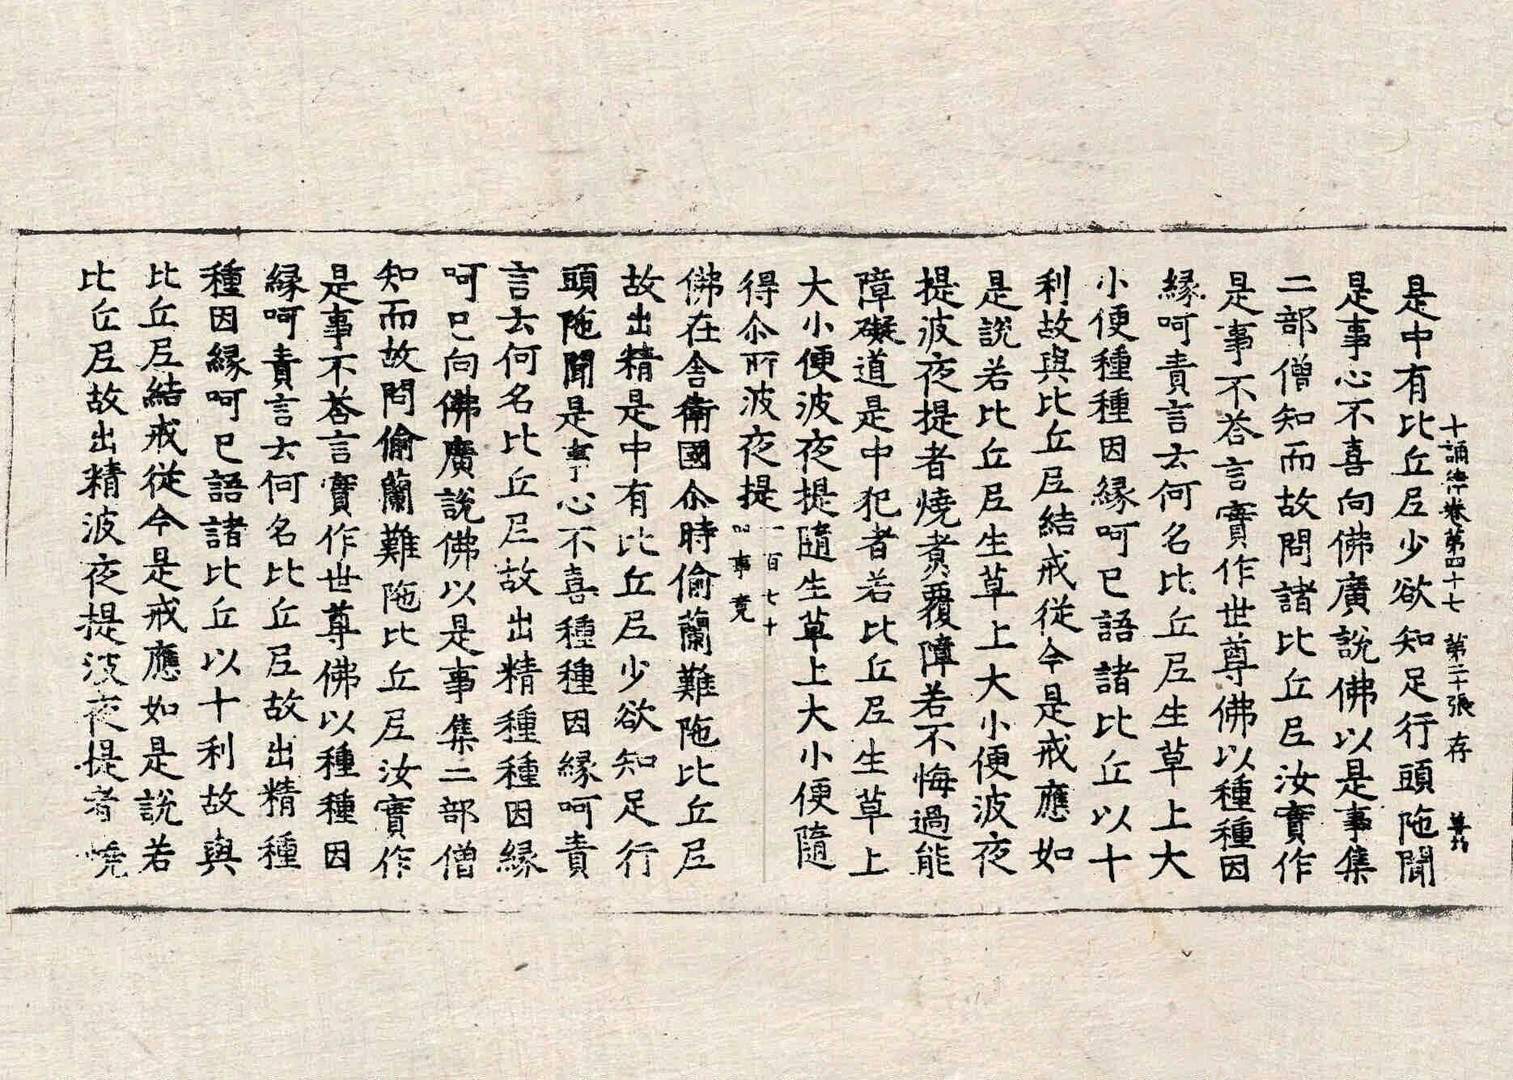 十誦律卷第四十七 第二十張 存
是中有比丘尼少欲知足行頭陁聞
是事心不喜向佛廣說佛以是事集
二部僧知而故問諸比丘尼汝實作
是事不荅言實作世尊佛以種種因
緣呵責言云何名比丘尼生草上大
小便種種因緣呵已語諸比丘以十
利故與比丘尼結戒從今是戒應如
是說若比丘尼生草上大小便波夜
提波夜提者燒煑覆障若不悔過能
障礙道是中犯者若比丘尼生草上
大小便波夜提隨生草上大小便隨
得尒所波夜提一百七十四事竟
佛在舍衛國尒時偷蘭難陁比丘尼
故出精是中有比丘尼少欲知足行
頭陁聞是事心不喜種種因緣呵責
言云何名比丘尼故出精種種因緣
呵已向佛廣說佛以是事集二部僧
知而故問偷蘭難陁比丘尼汝實作
是事不荅言實作世尊佛以種種因
緣呵責言云何名比丘尼故出精種
種因緣呵已語諸比丘以十利故與
比丘尼結戒從今是戒應如是說若
比丘尼故出精波夜提波夜提者燒